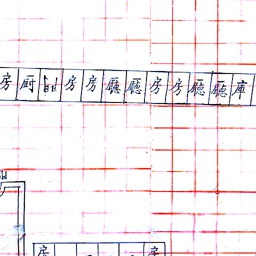 房厨 房房廳廳房房廳廳庫
房 房